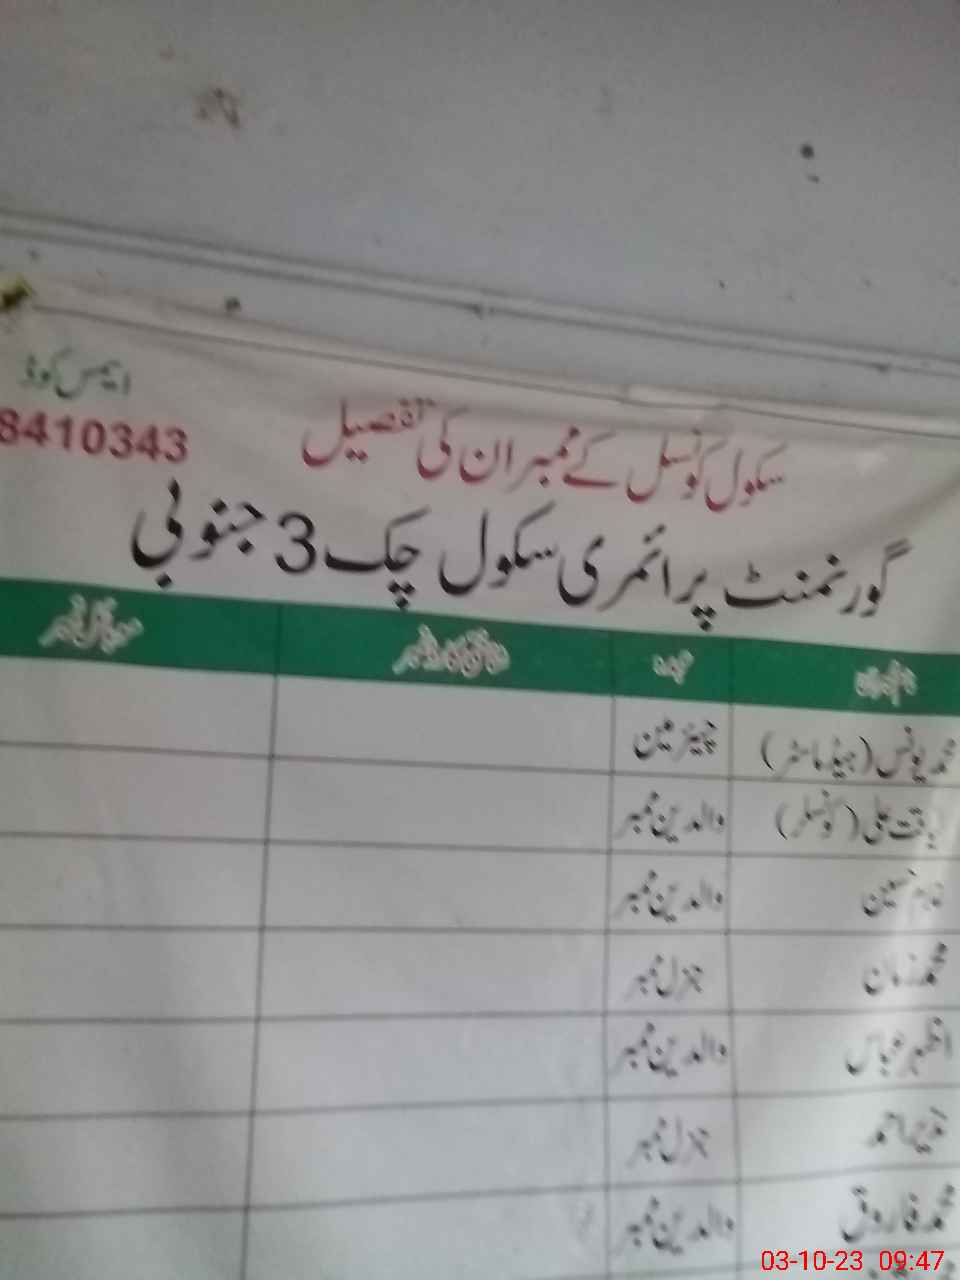 ایمس کوڈ
8410343
سکول کونسل کے ممبران کی تفصیل
گورنمنٹ پرائمری سکول چک 3 جنوبی
عہدہ شناختی کارڈ نمبر موبائل نمبر
محمد یونس (ہیڈ ماسٹر) چیئرمین
لیاقت علی (کونسلر) والدین ممبر
خادم حسین والدین ممبر
محمد زمان جنرل ممبر
اظہر عباس والدین ممبر
نذیر احمد جنرل ممبر
محمد فاروق والدین ممبر
03-10-23 09:47